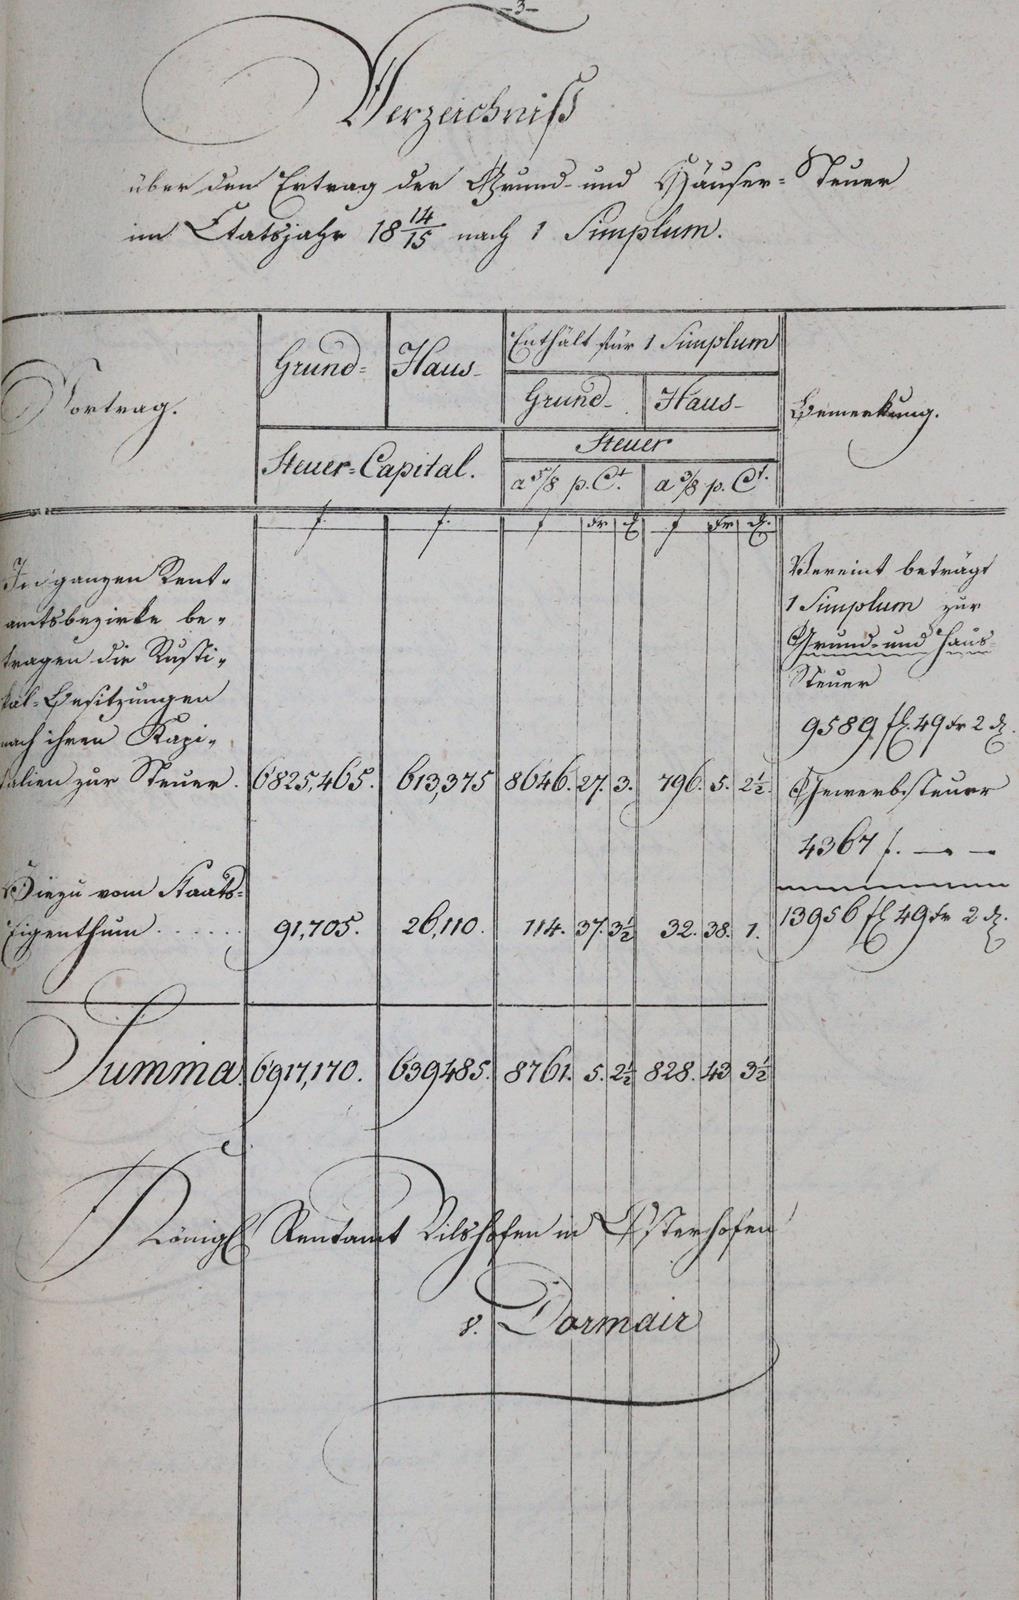 -3-
Verzeichniß
über den Ertrag der Grund- und Häuser-Steuer
im Etatsjahr 18 14/15 nach 1 Simplum.
Vortrag.
Grund-
Haus-
Steuer-Capital.
Enthält für 1 Simplum
Grund-
Haus-
Steuer
a 5/8 p. Ct.
a 3/8 p. Ct.
Bemerkung.
f. f. f kr ₰ f kr ₰
Im ganzen Rent-
amtsbezirke be-
tragen die Rusti-
kal-Besitzungen
nach ihren Kapi-
talien zur Steuer. 6825,465. 613,375 8646. 27. 3. 796. 5. 2½.
Hiezu vom Staats-
Eigenthum...... 91,705. 26,110. 114. 37. 3½ 32. 38. 1.
Summa 6917,170. 639485. 8761. 5. 2½ 828. 43 3½
Vereint beträgt
1 Simplum zur
Grund- und Haus-
Steuer
9589 fl. 49 kr 2 ₰.
Gewerbsteuer
4367 f. — —
13956 fl 49 kr 2 ₰.
Königl Rentamt Vilshofen in Osterhofen
v. Dormair